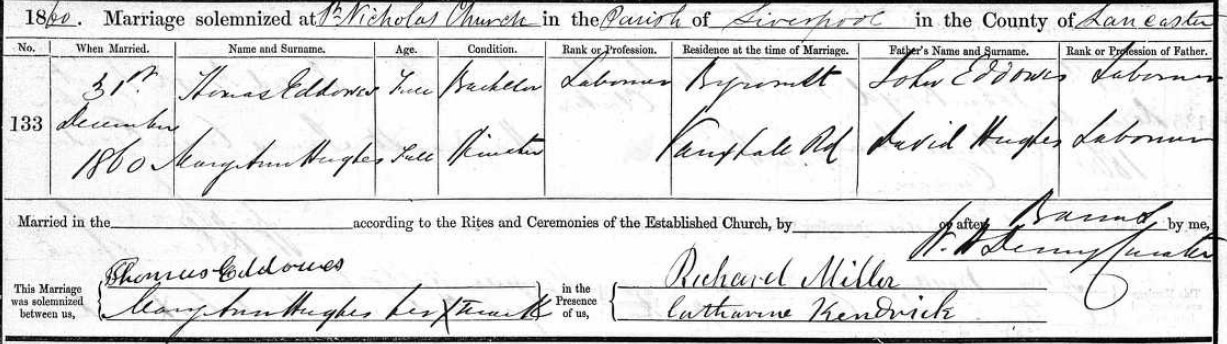 1860. Marriage solemnized at St. Nicholas Church in the Parish of Liverpool in the County of Lancaster
No. When Married. Name and Surname. Age. Condition. Rank or Profession. Residence at the time of Marriage. Father's Name and Surname. Rank or Profession of Father.
31st Thomas Eddowes Full Bachelor Laborour Byrom St John Eddowes Laborour
133 December
1860 Mary Ann Hughes Full Spinster Vauxhall Rd David Hughes Laborour
Married in the according to the Rites and Ceremonies of the Established Church, by or after Banns by me,
Curate
This Marriage was solemnized between us,
Thomas Eddowes
Mary Ann Hughes her X mark
in the Presence of us,
Richard Miller
Catharine Kendrick